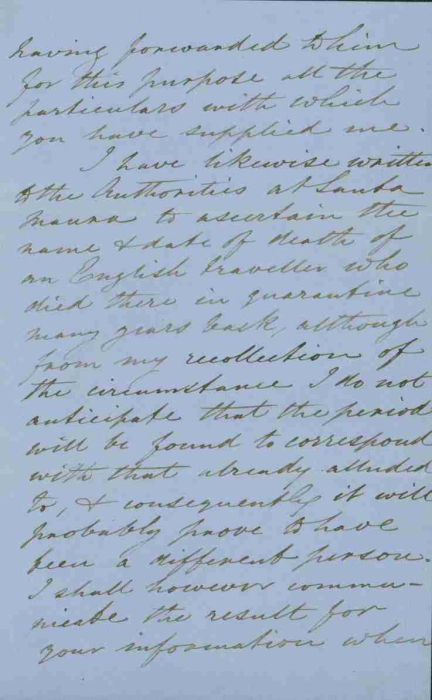 having forwarded to him
for this purpose all the
particulars with which
you have supplied me.
I have likewise written
to the Authorities at Santa
Maura to ascertain the
name & date of death of
an English traveller who
died there in quarantine
many years back, although
from my recollection of
the circumstance I do not
anticipate that the period
will be found to correspond
with that already alluded
to, & consequently it will
probably prove to have
been a different person.
I shall however commu-
nicate the result for
your information when